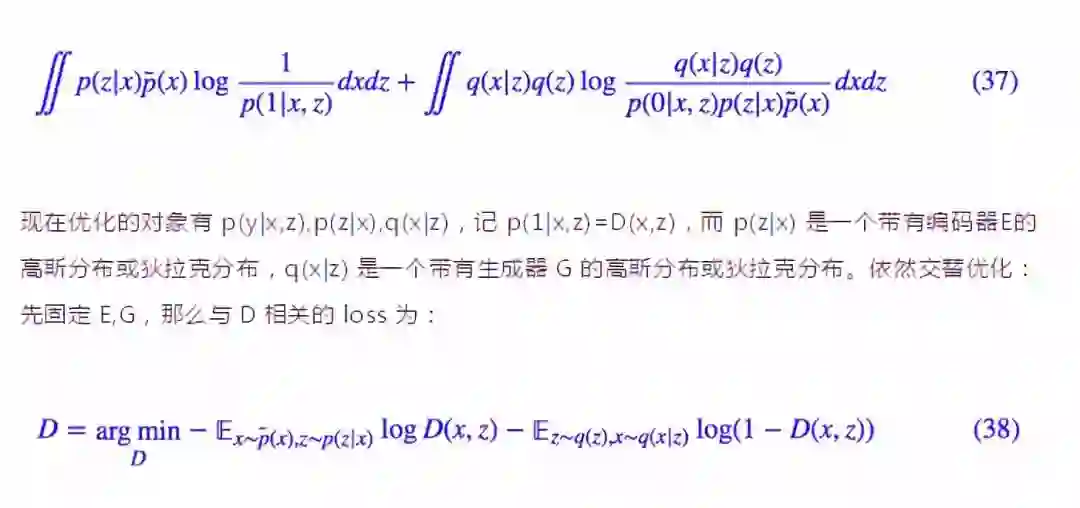 ∬ p(z|x)p̃(x) log 1/p(1|x, z) dxdz + ∬ q(x|z)q(z) log q(x|z)q(z)/p(0|x, z)p(z|x)p̃(x) dxdz (37)
现在优化的对象有 p(y|x,z),p(z|x),q(x|z)，记 p(1|x,z)=D(x,z)，而 p(z|x) 是一个带有编码器E的
高斯分布或狄拉克分布，q(x|z) 是一个带有生成器 G 的高斯分布或狄拉克分布。依然交替优化：
先固定 E,G，那么与 D 相关的 loss 为：
D = arg min_D − 𝔼_{x∼p̃(x),z∼p(z|x)} log D(x, z) − 𝔼_{z∼q(z),x∼q(x|z)} log(1 − D(x, z)) (38)